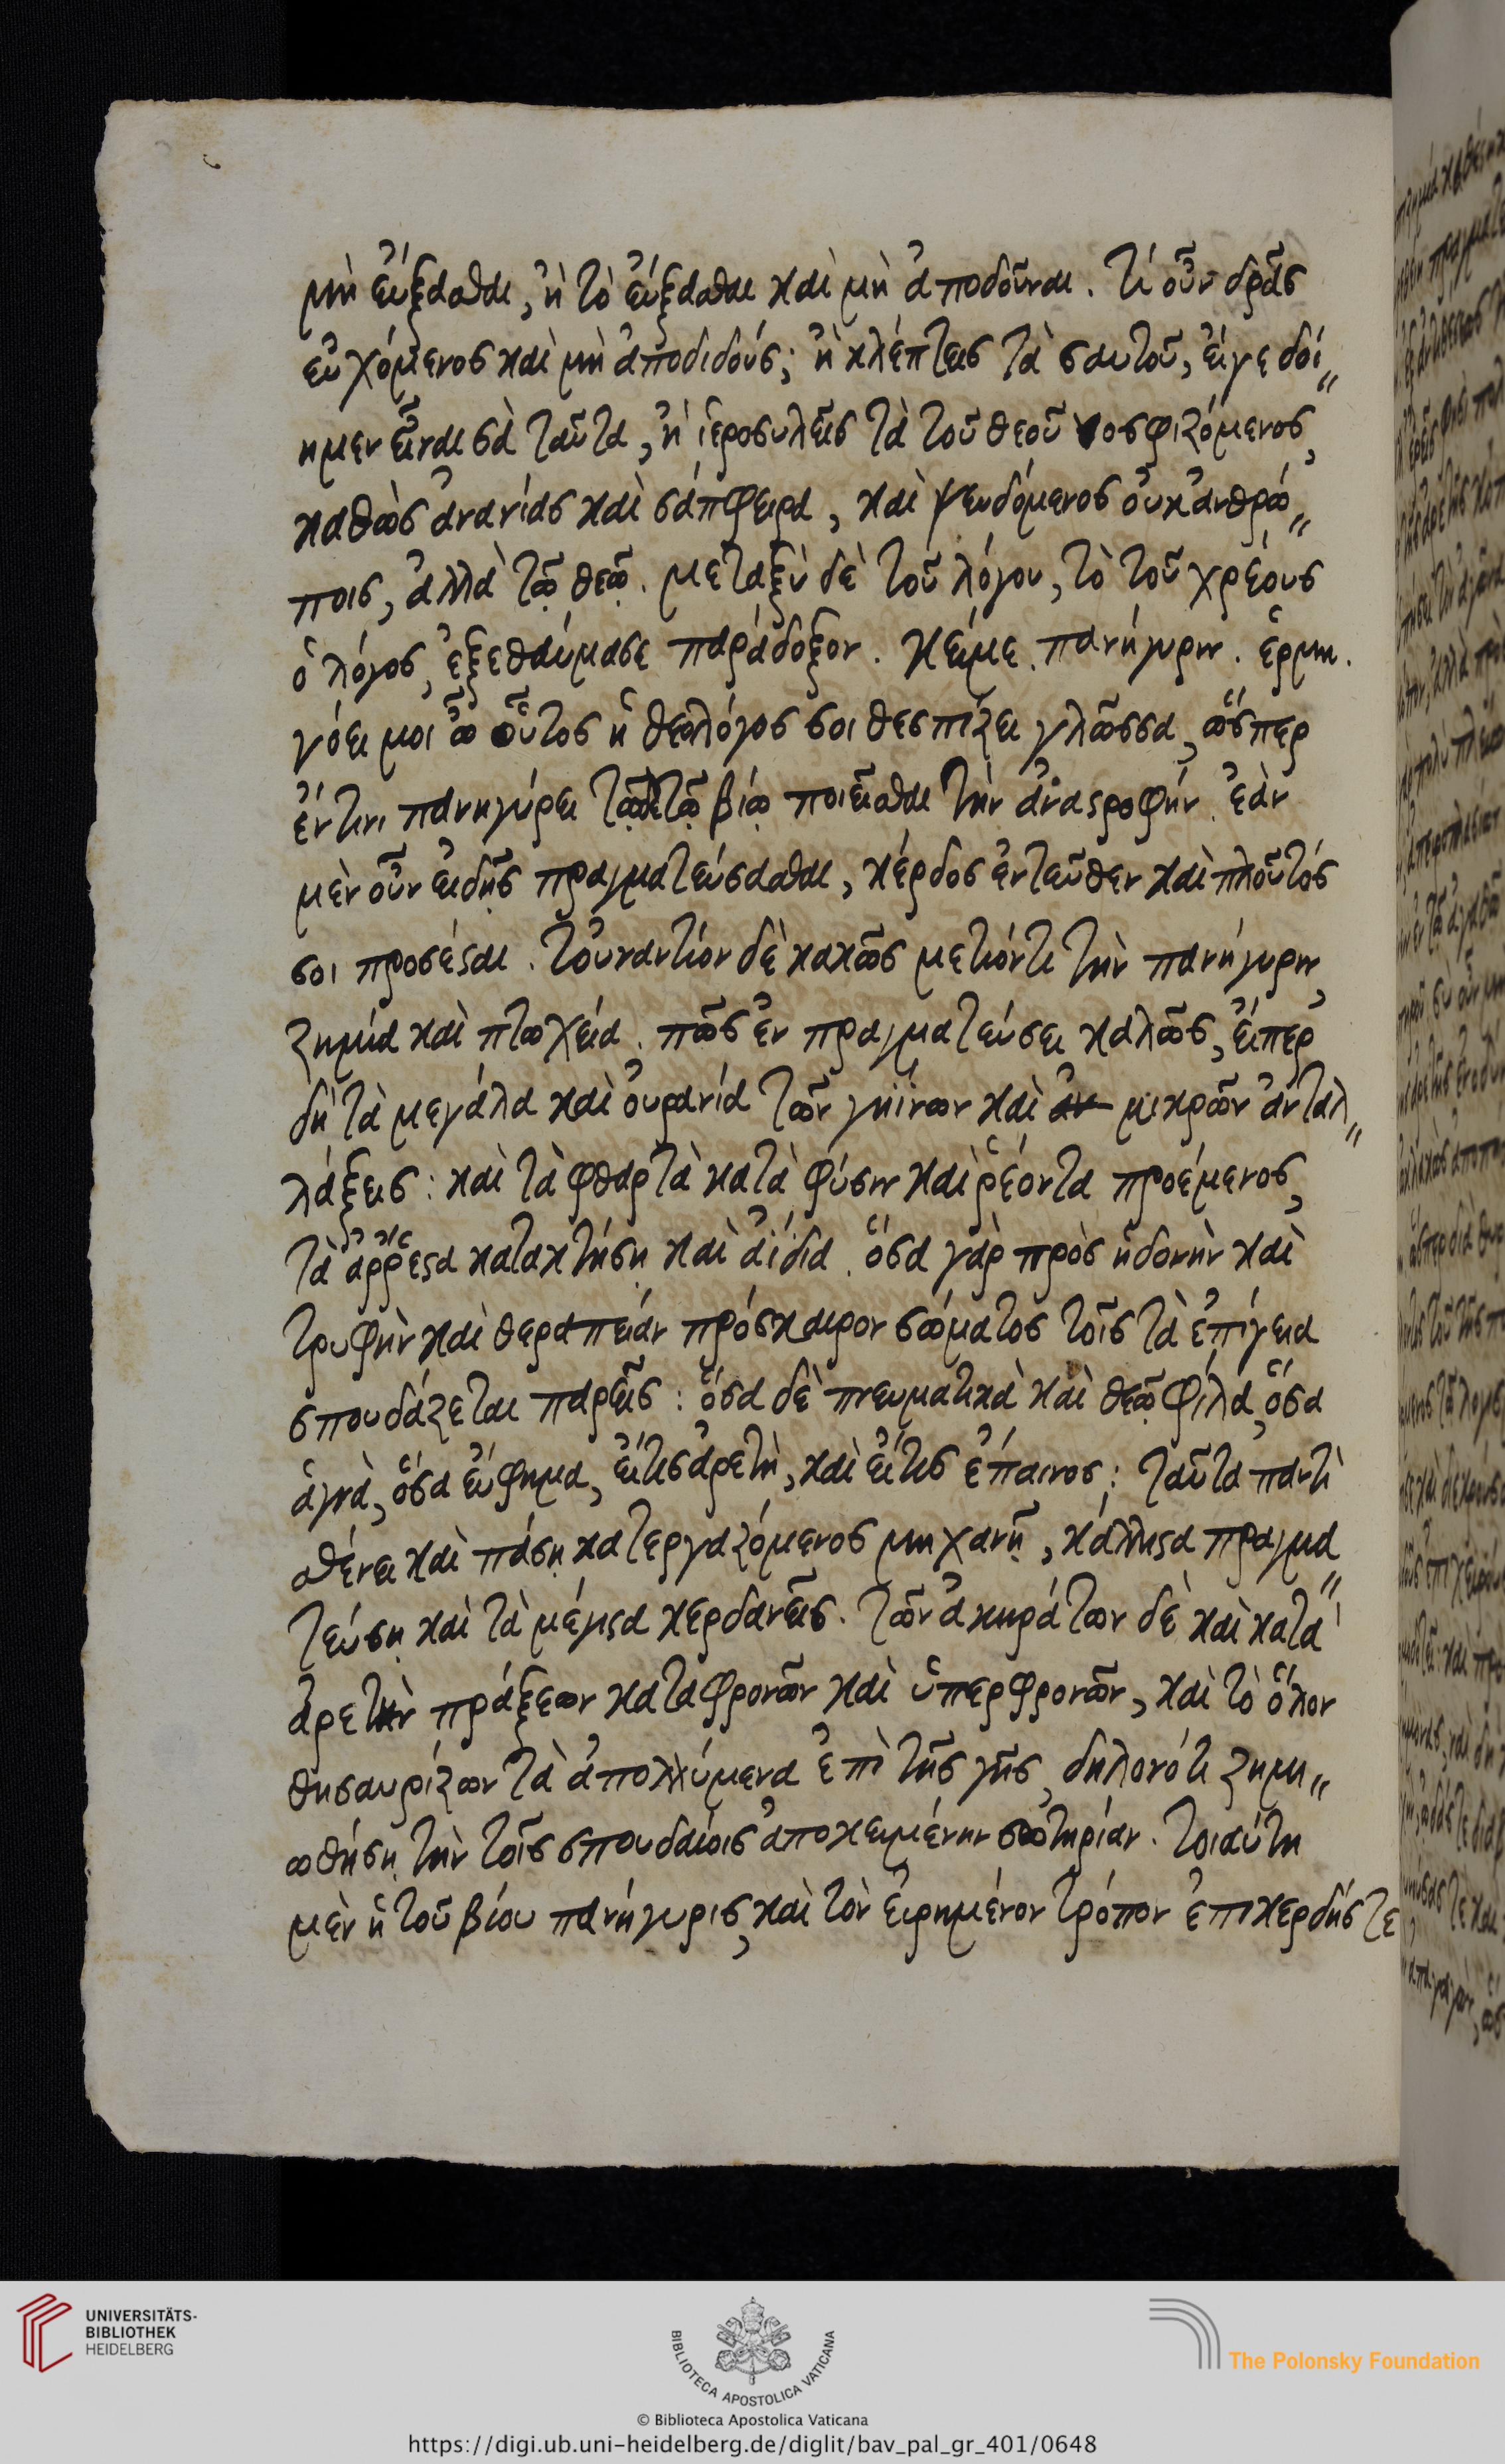 μὴ εὔξασθαι, ἢ τὸ εὔξασθαι καὶ μὴ ἀποδοῦναι. τί οὖν δρᾶς
εὐχόμενος καὶ μὴ ἀποδιδούς; ἢ κλέπτεις τὰ σαυτοῦ, εἴγε δοί„
ημεν εἶναι σὰ ταῦτα, ἢ ἱεροσυλεῖς τὰ τοῦ θεοῦ νοσφιζόμενος,
καθὼς ἀνανίας καὶ σάπφειρα, καὶ ψευδόμενος οὐκ ἀνθρώ„
ποις, ἀλλὰ τῷ θεῷ. μεταξὺ δὲ τοῦ λόγου, τὸ τοῦ χρέους
ὁ λόγος, ἐξεθαύμασε παράδοξον. κείμε. πανήγυριν. ἑρμη.
νόει μοι ὦ οὗτος ἡ θεολόγος σοι θεσπίζει γλῶσσα, ὥσπερ
ἔν τινι πανηγύρει τῷδε τῷ βίῳ ποιεῖσθαι τὴν ἀναστροφήν. ἐὰν
μὲν οὖν εἰδῇς πραγματεύσασθαι, κέρδος ἐντεῦθεν καὶ πλοῦτός
σοι προσέσται. τοὐναντίον δὲ κακῶς μετιόντι τὴν πανήγυριν,
ζημία καὶ πτωχεία. πῶς ἐν πραγματεύσει καλῶς, εἴπερ
δὴ τὰ μεγάλα καὶ οὐράνια τῶν γηΐνων καὶ μικρῶν ἀνταλ„
λάξεις: καὶ τὰ φθαρτὰ κατὰ φύσιν καὶ ῥέοντα προέμενος,
τὰ κατακτήσῃ καὶ ἀίδια. ὅσα γὰρ πρὸς ἡδονὴν καὶ
τρυφὴν καὶ θεραπείαν πρόσκαιρον σώματος τοῖς τὰ ἐπίγεια
σπουδάζεται παρεῖς: ὅσα δὲ πνευματικὰ καὶ θεῷ φίλα, ὅσα
ἁγνὰ, ὅσα εὔφημα, εἴτις ἀρετὴ, καὶ εἴτις ἔπαινος: ταῦτα παντὶ
σθένει καὶ πάσῃ κατεργαζόμενος μηχανῇ, κάλλιστα πραγμα„
τεύσῃ καὶ τὰ μέγιστα κερδανεῖς. τῶν ἀκηράτων δὲ καὶ κατὰ
ἀρετὴν πράξεων καταφρονῶν καὶ ὑπερφρονῶν, καὶ τὸ ὅλον
θησαυρίζων τὰ ἀπολλύμενα ἐπὶ τῆς γῆς, δηλονότι ζημι„
ωθήσῃ τὴν τοῖς σπουδαίοις ἀποκειμένην σωτηρίαν. τοιαύτη
μὲν ἡ τοῦ βίου πανήγυρις, καὶ τὸν εἰρημένον τρόπον ἐπικερδής τε
UNIVERSITÄTS-
BIBLIOTHEK
HEIDELBERG
BIBLIOTECA APOSTOLICA VATICANA
The Polonsky Foundation
© Biblioteca Apostolica Vaticana
https://digi.ub.uni-heidelberg.de/diglit/bav_pal_gr_401/0648